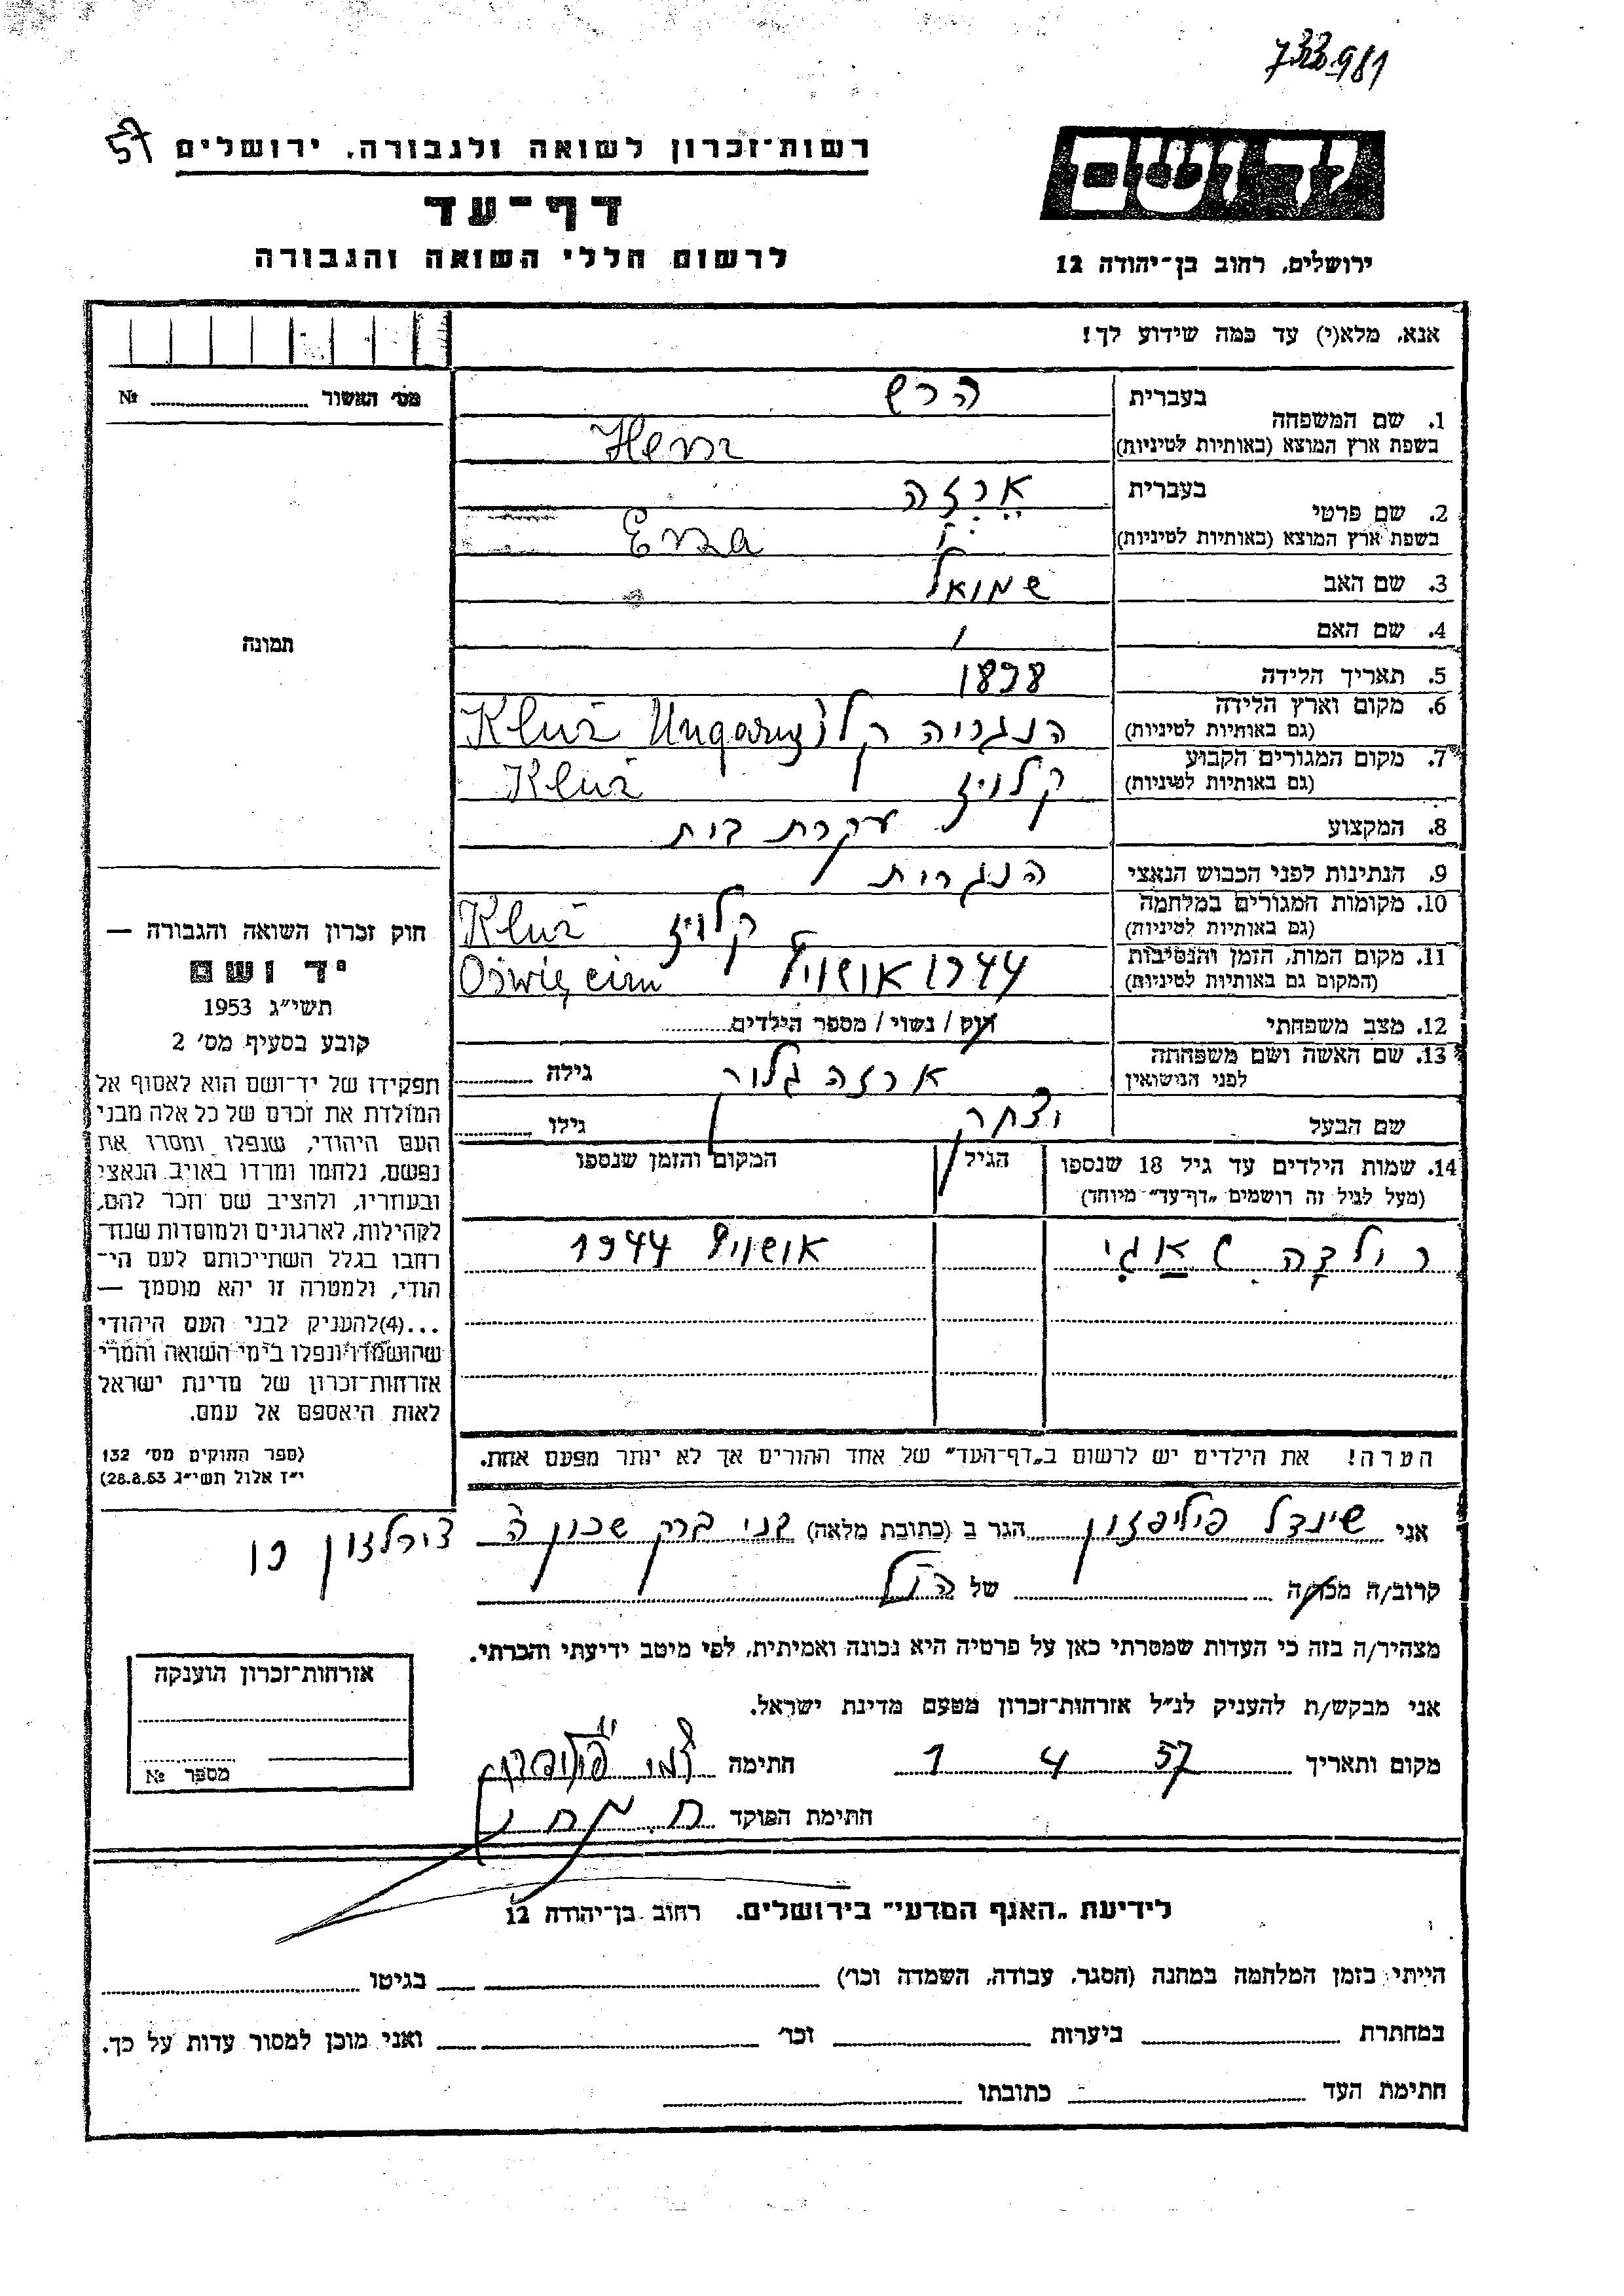 733981
57
רשות-זכרון לשואה ולגבורה, ירושלים
דף-עד
לרשום חללי השואה והגבורה
יד ושם
ירושלים, רחוב בן-יהודה 12
אנא, מלא(י) עד כמה שידוע לך!
מס' האשור № 
תמונה
1. שם המשפחה בעברית הרש
בשפת ארץ המוצא (באותיות לטיניות)
2. שם פרטי בעברית ארזה
בשפת ארץ המוצא (באותיות לטיניות)
3. שם האב שמואל
4. שם האם /
5. תאריך הלידה 1898
6. מקום וארץ הלידה הנגריה
(גם באותיות לטיניות) Kluż
7. מקום המגורים הקבוע קלויז
(גם באותיות לטיניות) Kluż
8. המקצוע עקרת בית
9. הנתינות לפני הכבוש הנאצי הנגרית
10. מקומות המגורים במלחמה קלויז
(גם באותיות לטיניות) Kluż
11. מקום המות, הזמן והנסיבות 1944 אושויץ
(המקום גם באותיות לטיניות) Oświęcim
12. מצב משפחתי רוק / נשוי / מספר הילדים
13. שם האשה ושם משפחתה ארזה גלור גילה
לפני הנישואין
שם הבעל יצחק גילו
14. שמות הילדים עד גיל 18 שנספו הגיל המקום והזמן שנספו
(מעל לגיל זה רושמים "דף-עד" מיוחד)
אושויץ 1944
הערה! את הילדים יש לרשום ב"דף-העד" של אחד ההורים אך לא יותר מפעם אחת.
חוק זכרון השואה והגבורה —
יד ושם
תשי"ג 1953
קובע בסעיף מס' 2
תפקידו של יד-ושם הוא לאסוף אל
המולדת את זכרם של כל אלה מבני
העם היהודי, שנפלו ומסרו את
נפשם, נלחמו ומרדו באויב הנאצי
ובעוזריו, ולהציב שם וזכר להם,
לקהילות, לארגונים ולמוסדות שנח-
רבו בגלל השתייכותם לעם הי-
הודי, ולמטרה זו יהא מוסמך —
...(4)להעניק לבני העם היהודי
שהושמדו ונפלו בימי השואה והמרי
אזרחות-זכרון של מדינת ישראל
לאות היאספם אל עמם.
(ספר החוקים מס' 132
י"ז אלול תשי"ג 28.8.53)
אני שינדל פיליפזון הגר ב (כתובת מלאה) בני ברק שכון ה
קרוב/ה מכר/ה של הנ"ל
מצהיר/ה בזה כי העדות שמסרתי כאן על פרטיה היא נכונה ואמיתית, לפי מיטב ידיעתי והכרתי.
אני מבקש/ת להעניק לנ"ל אזרחות-זכרון מטעם מדינת ישראל.
מקום ותאריך 57 4 1 חתימה
חתימת הפוקד
אזרחות-זכרון הוענקה
מספר №
לידיעת "האגף המדעי" בירושלים, רחוב בן-יהודה 12
הייתי בזמן המלחמה במחנה (הסגר, עבודה, השמדה וכו') בגיטו
במחתרת ביערות וכו' ואני מוכן למסור עדות על כך.
חתימת העד כתובתו